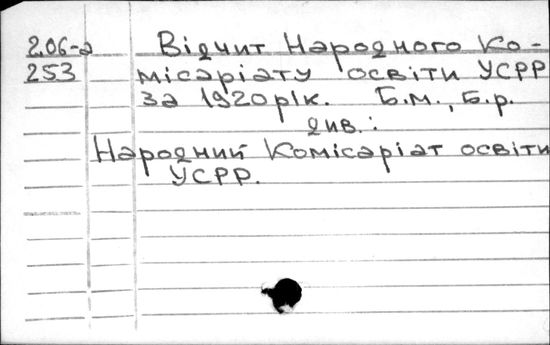 2.06-а Відчит Народного Ко-
253 місаріату освіти УСРР
за 1920 рік. Б.м., Б.р.
див.:
Народний Комісаріат освіти
УСРР.